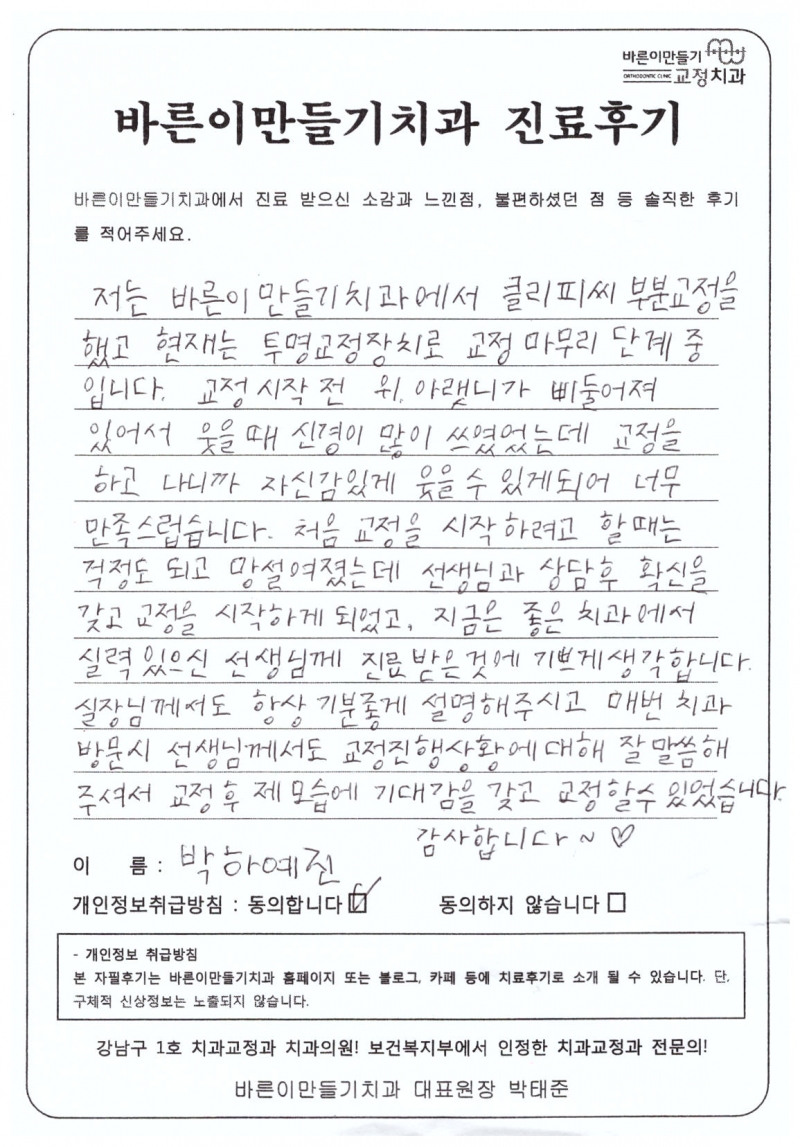 바른이만들기
ORTHODONTIC CLINIC 교정치과
바른이만들기치과 진료후기
바른이만들기치과에서 진료 받으신 소감과 느낀점, 불편하셨던 점 등 솔직한 후기
를 적어주세요.
저는 바른이만들기치과에서 클리피씨 부분교정을
했고 현재는 투명교정장치로 교정 마무리 단계 중
입니다. 교정 시작 전 위, 아랫니가 삐둘어져
있어서 웃을 때 신경이 많이 쓰였었는데 교정을
하고 나니까 자신감있게 웃을 수 있게되어 너무
만족스럽습니다. 처음 교정을 시작하려고 할 때는
걱정도 되고 망설여졌는데 선생님과 상담후 확신을
갖고 교정을 시작하게 되었고, 지금은 좋은 치과에서
실력있으신 선생님께 진료받은것에 기쁘게생각합니다.
실장님께서도 항상 기분좋게 설명해주시고 매번 치과
방문시 선생님께서도 교정진행상황에대해 잘말씀해
주셔서 교정후 제모습에 기대감을 갖고 교정할수 있었습니다.
감사합니다~♡
이 름 : 박하예진
개인정보취급방침 : 동의합니다 ☑ 동의하지 않습니다 □
- 개인정보 취급방침
본 자필후기는 바른이만들기치과 홈페이지 또는 블로그, 카페 등에 치료후기로 소개 될 수 있습니다. 단,
구체적 신상정보는 노출되지 않습니다.
강남구 1호 치과교정과 치과의원! 보건복지부에서 인정한 치과교정과 전문의!
바른이만들기치과 대표원장 박태준